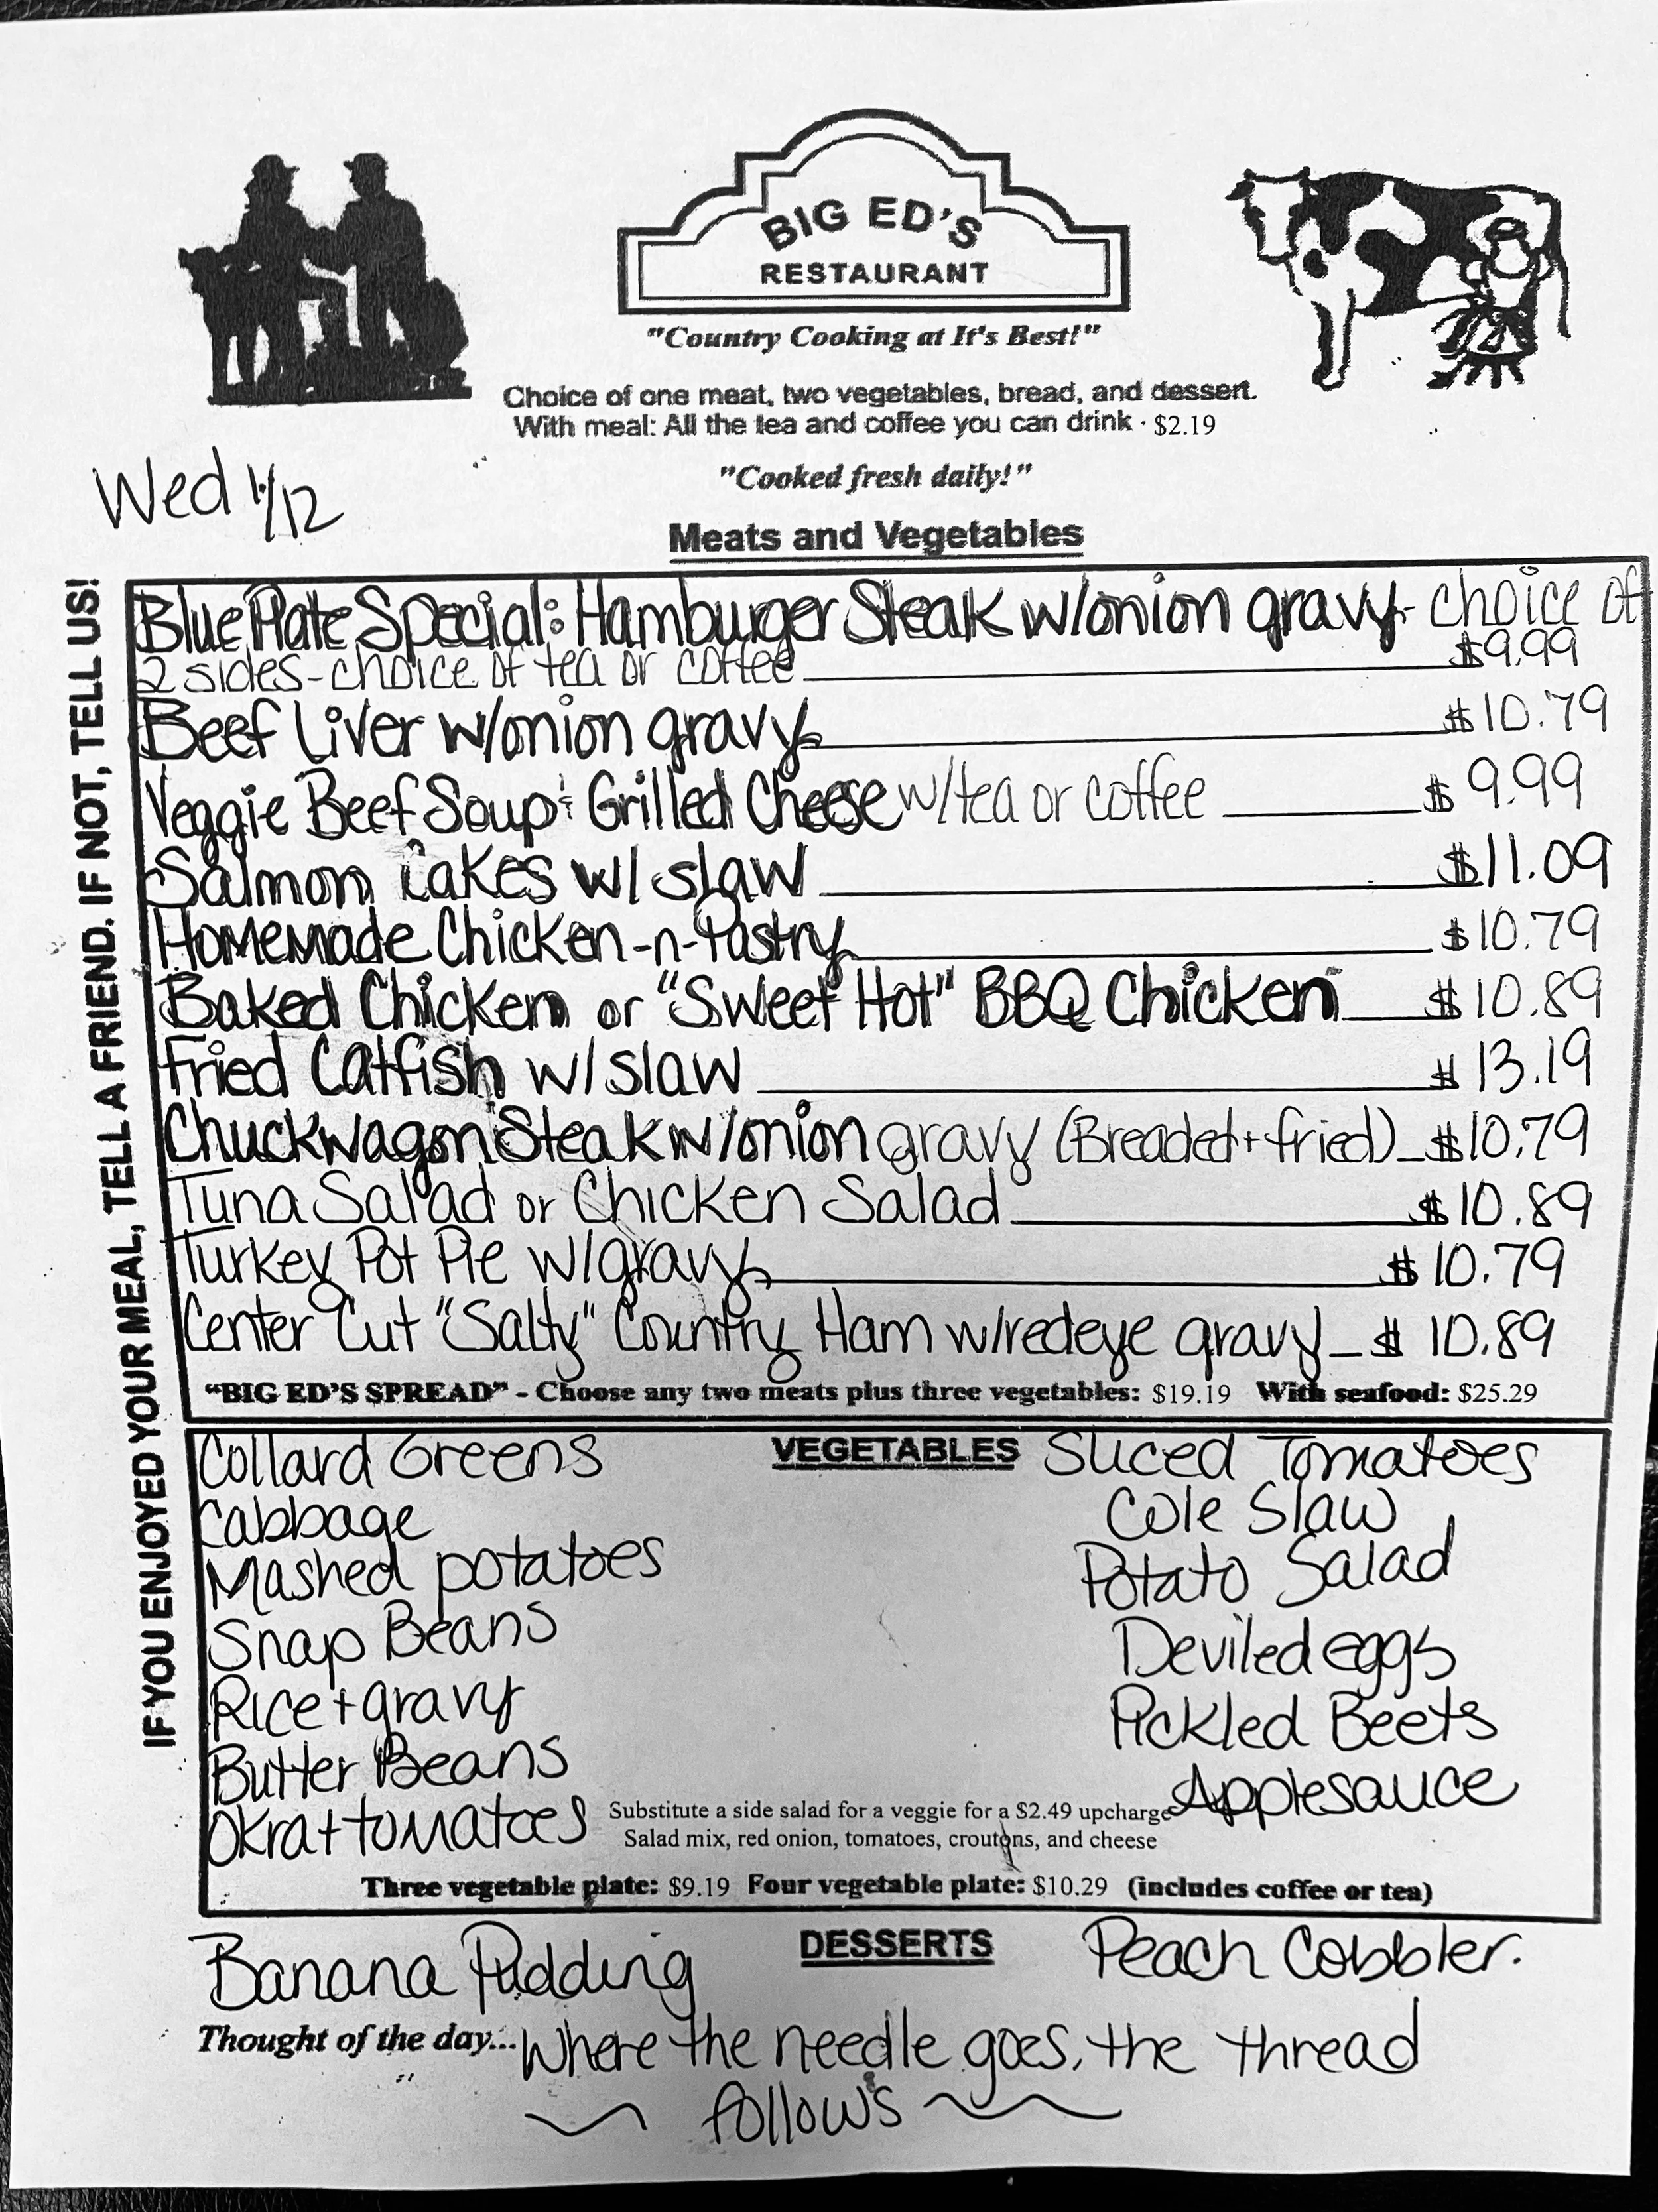 BIG ED'S
RESTAURANT
"Country Cooking at It's Best!"
Choice of one meat, two vegetables, bread, and dessert.
With meal: All the tea and coffee you can drink · $2.19
"Cooked fresh daily!"
Wed 1/12
Meats and Vegetables
IF YOU ENJOYED YOUR MEAL, TELL A FRIEND. IF NOT, TELL US!
Blue Plate Special: Hamburger Steak w/onion gravy - choice of
2 sides - choice of tea or coffee $9.99
Beef Liver w/onion gravy $10.79
Veggie Beef Soup & Grilled Cheese w/tea or coffee $9.99
Salmon Cakes w/ slaw $11.09
Homemade Chicken-n-Pastry $10.79
Baked Chicken or "Sweet Hot" BBQ Chicken $10.89
Fried Catfish w/ slaw $13.19
Chuckwagon Steak w/onion gravy (Breaded + fried) $10.79
Tuna Salad or Chicken Salad $10.89
Turkey Pot Pie w/gravy $10.79
Center Cut "Salty" Country Ham w/redeye gravy $10.89
"BIG ED'S SPREAD" - Choose any two meats plus three vegetables: $19.19 With seafood: $25.29
VEGETABLES
Collard Greens
Cabbage
Mashed potatoes
Snap Beans
Rice + gravy
Butter Beans
Okra + tomatoes
Sliced Tomatoes
Cole Slaw
Potato Salad
Deviled eggs
Pickled Beets
Applesauce
Substitute a side salad for a veggie for a $2.49 upcharge
Salad mix, red onion, tomatoes, croutons, and cheese
Three vegetable plate: $9.19 Four vegetable plate: $10.29 (includes coffee or tea)
DESSERTS
Banana Pudding
Peach Cobbler.
Thought of the day... Where the needle goes, the thread
follows